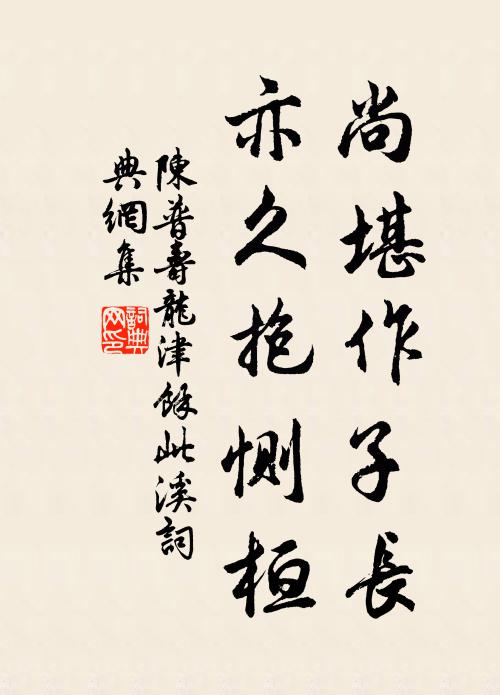 尚堪作子長
亦久抱惻桓
陳普壽龍津餘此溪詞
典網集
詞典网印